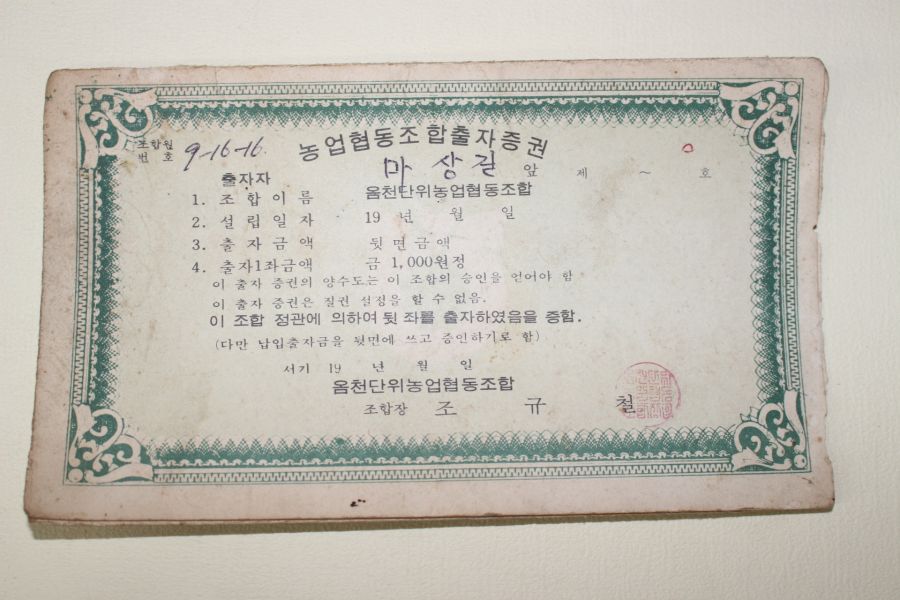 조합원
번 호 9-16-16
농업협동조합출자증권
출자자 마상길 앞 제 ~ 호
1. 조합이름 옴천단위농업협동조합
2. 설립일자 19 년 월 일
3. 출자금액 뒷면금액
4. 출자1좌금액 금 1,000원정
이 출자 증권의 양수도는 이 조합의 승인을 얻어야 함
이 출자 증권은 질권 설정을 할 수 없음.
이 조합 정관에 의하여 뒷 좌를 출자하였음을 증함.
(다만 납입출자금을 뒷면에 쓰고 증인하기로 함)
서기 19 년 월 일
옴천단위농업협동조합
조합장 조 규 철